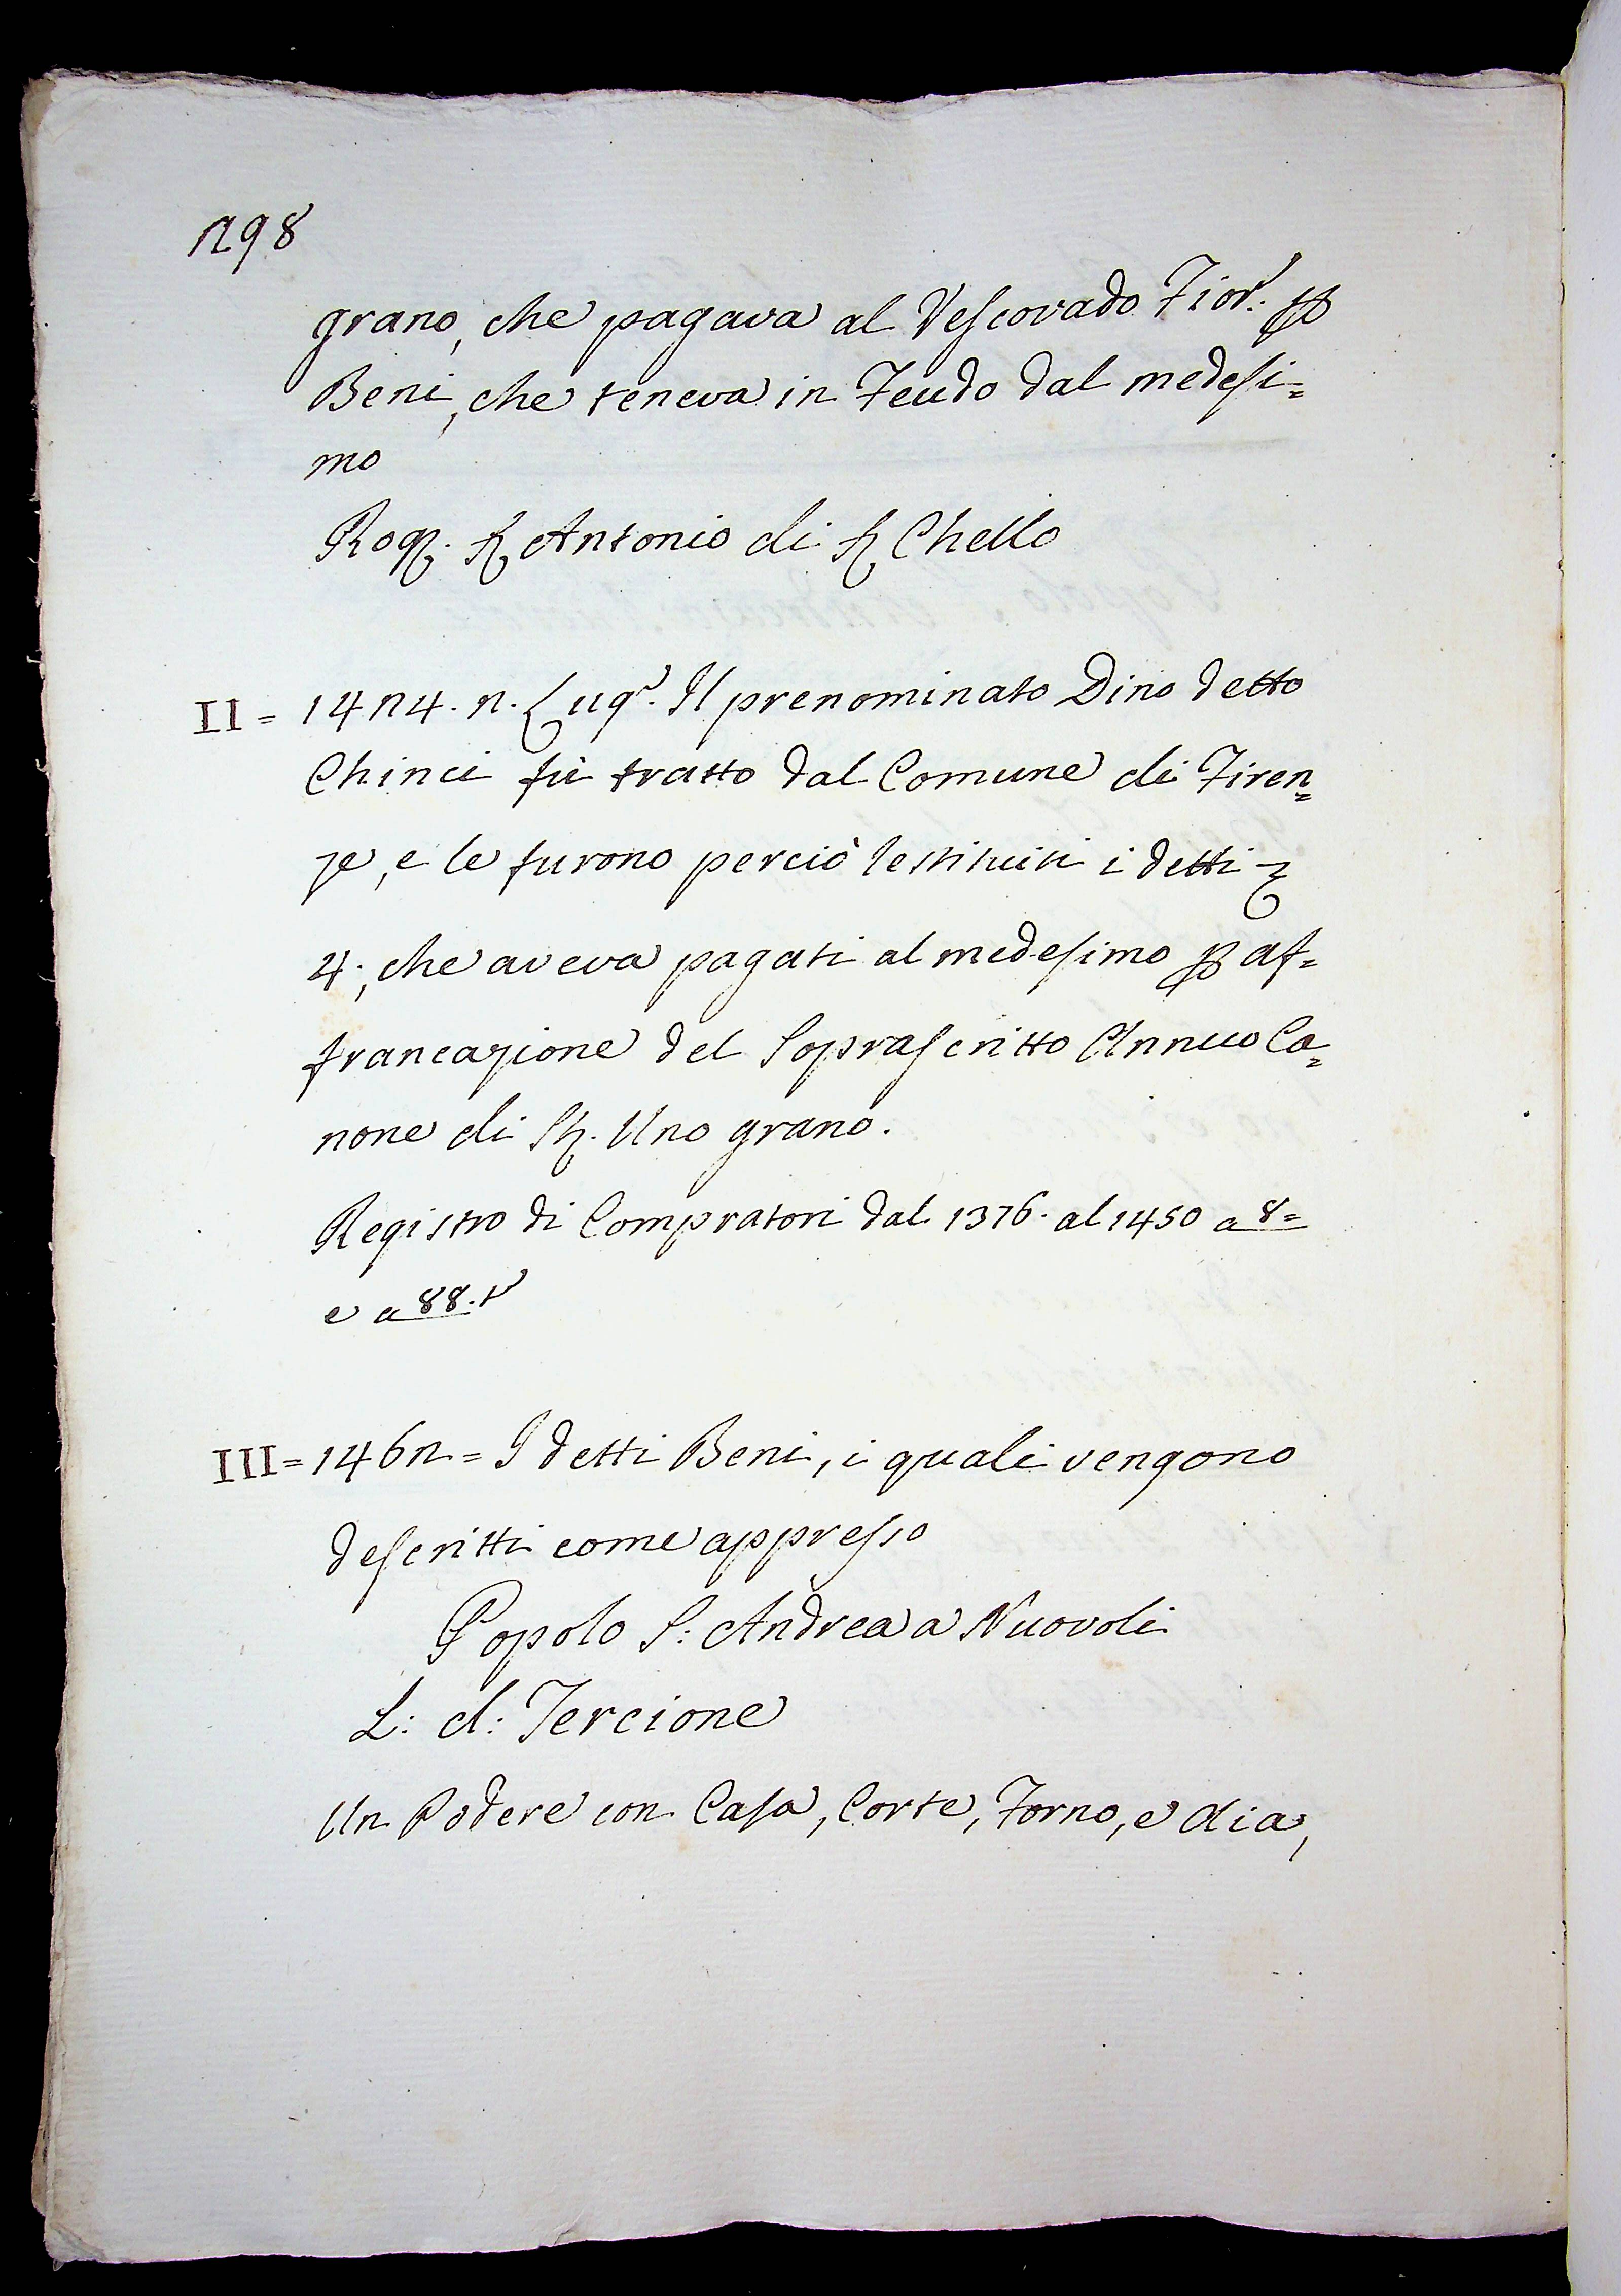 298
grano, che pagava al Vescovado Fior. p
Beni, che teneva in Feudo dal medesi=
mo
Rog. S Antonio di S Chello
II = 1424. 2. Lug. Il prenominato Dino detto
Chinci fù tratto dal Comune di Firen=
ze, e le furono perciò restituiti i detti
4; che aveva pagati al medesimo p af=
francazione del Soprascritto Annuo Ca=
none di St. Uno grano.
Registro di Compratori dal 1376. al 1450 a 8=
e a 88. t
III = 1462 = I detti Beni, i quali vengono
descritti come appresso
Popolo S: Andrea a Nuovoli
L: d: Tercione
Un Podere con Casa, Corte, Forno, e Aia,